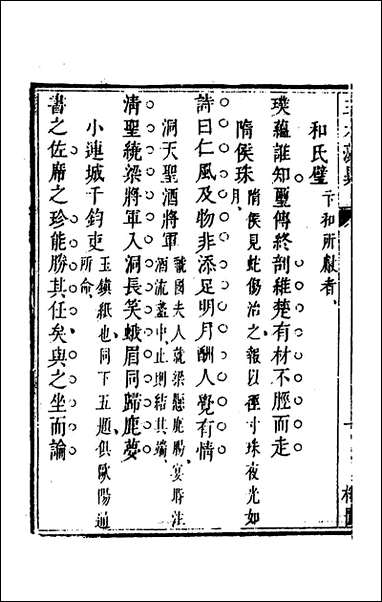 和氏璧卞和所獻者、
璞蘊誰知璽傳終剖維楚有材不脛而走
隋侯珠隋侯見蛇傷治之報以徑寸珠夜光如
月、
詩曰仁風及物非添足明月酬人覺有情
洞天聖酒將軍虢國夫人就梁懸鹿腸、宴時注
酒流盞中、止則結其端、
清聖統梁將軍入洞長笑蛾眉同歸鹿夢
小連城千鈞史玉鎮紙也、同下五題、俱歐陽通
所命、
書之佐席之珍能勝其任矣與之坐而論